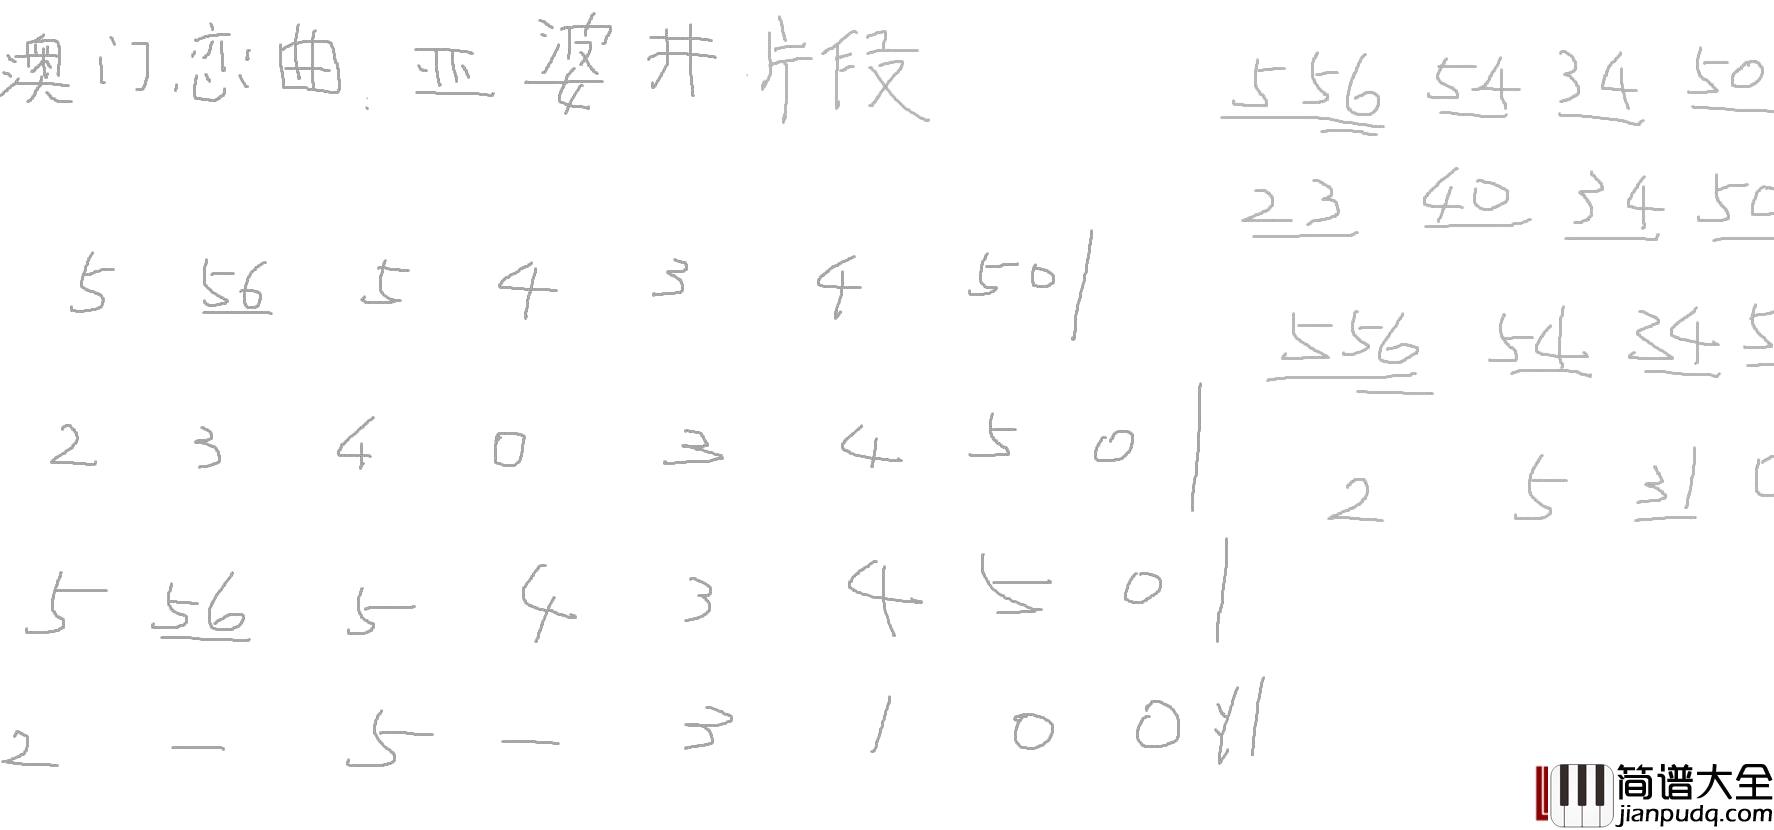 澳门恋曲.亚婆井片段
5 56 5 4 3 4 50|
2 3 4 0 3 4 5 0|
5 56 5 4 3 4 5 0|
2 — 5 — 3 1 0 0||
556 54 34 50
23 40 34 50
556 54 34 5
2 5 31 0
简谱大全
jianpudq.com